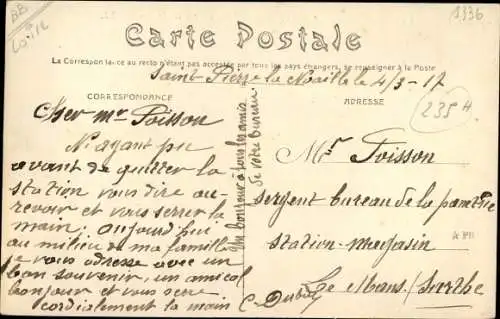 BB
Loi 12
1336
Carte Postale
La Correspondance au recto n'étant pas acceptée par tous les pays étrangers, se renseigner à la Poste
Saint-Pierre la Noaille le 4/3-17
CORRESPONDANCE
ADRESSE
235 H
Cher mr Poisson
N'ayant pu
avant de quitter la
station vous dire au
revoir et vous serrer la
main; aujourd'hui
au milieu de ma famille
je vous adresse avec un
bon souvenir, un amical
bonjour et vous serre
cordialement la main
C. Dubois
Un bonjour à tous les amis
de votre bureau
Mr Poisson
sergent bureau de la
station-magasin
Le Mans (Sarthe)